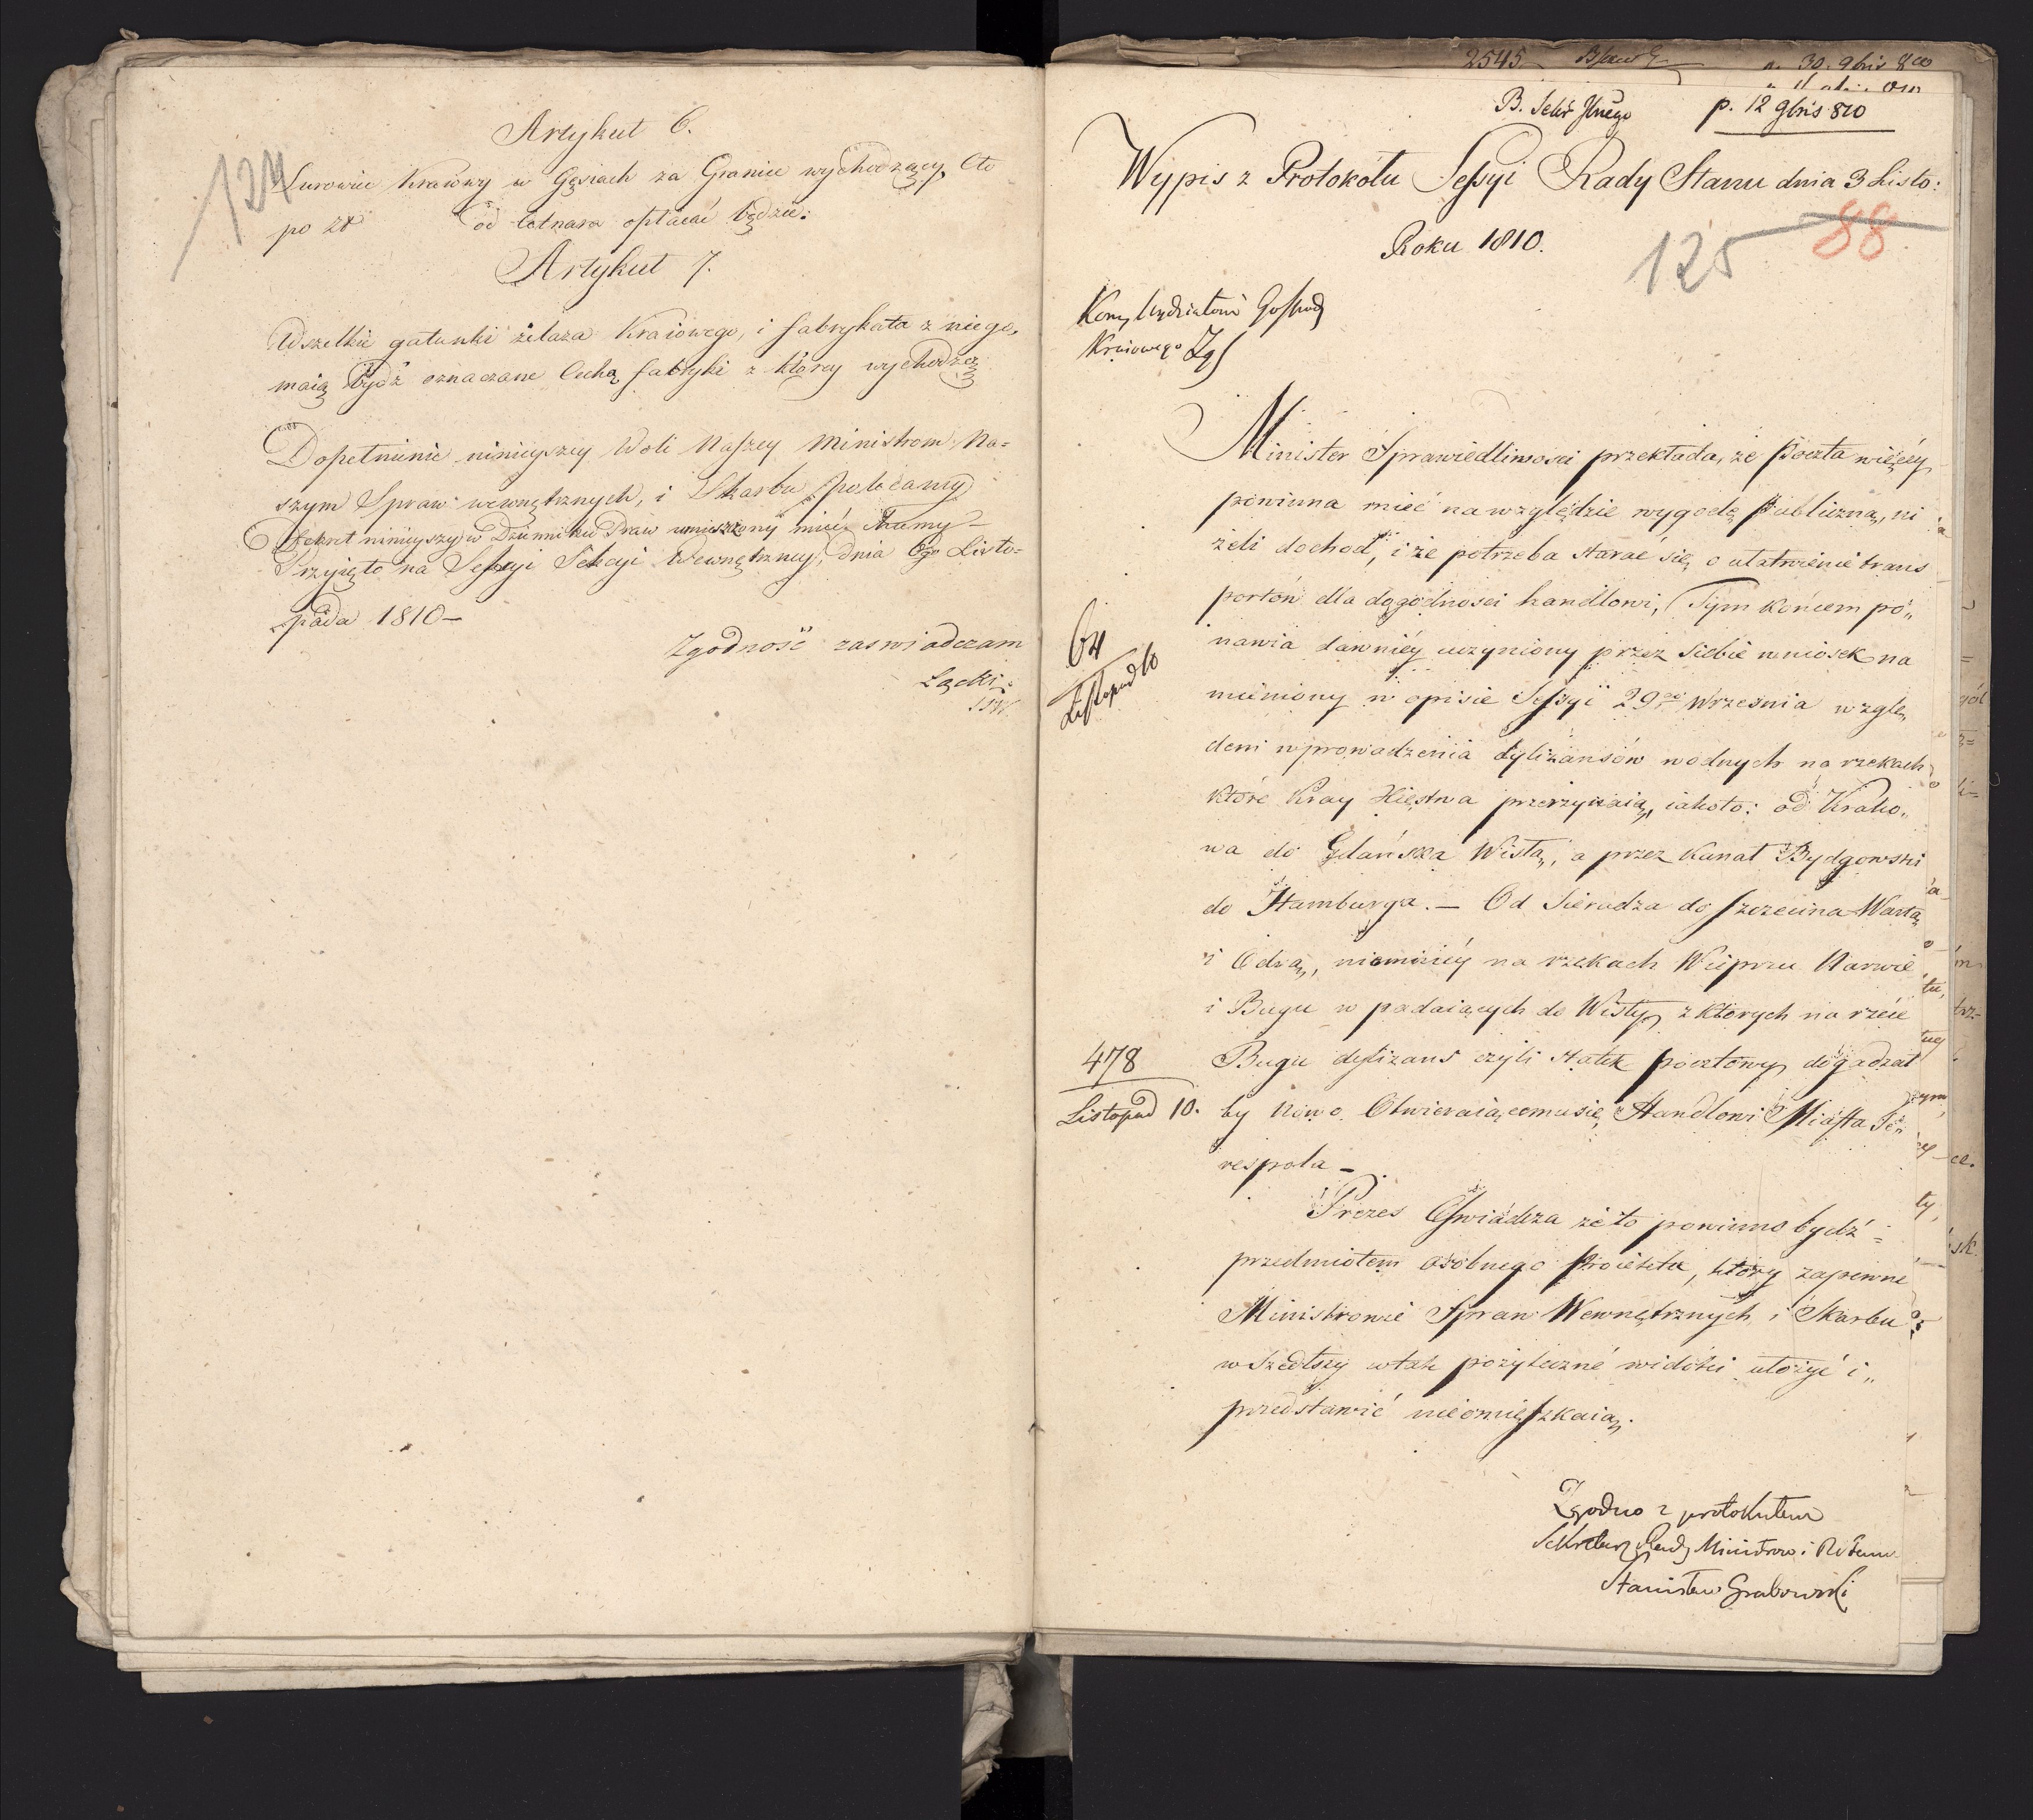 124
Artykuł 6.
Surowiec kraiowy w Gęsiach za Granice wychodzący, Cło
po zł od Cetnara opłacać będzie.
Artykuł 7.
Wszelkie gatunki żelaza Kraiowego, i fabrykata z niego,
maią bydź oznaczane Cechą fabryki z którey wychodzą
Dopełnienie ninieyszey Woli Naszey Ministrom Na=
szym Spraw wewnętrznych, i Skarbu polecamy
Dekret ninieyszy w Dzienniku Praw umieszczony mieć chcemy
Przyięto na Sessyi Sekcyi Wewnętrzney, dnia 6go Listo=
pada 1810 –
Zgodność zaswiadczam
Łącki
2545
p. 30. 9bris 810
B. Sekr Jlnego p. 12 9bris 810
Wypis z Protokołu Sessyi Rady Stanu dnia 3 Listo:
Roku 1810.
125 88
Kom, Wydziałowi Gospod
Kraiowego
Minister Sprawiedliwosci przekłada, że Poczta więcéy
powinna mieć na względzie wygodę publiczną, ni
żeli dochod, i że potrzeba starać się o ułatwienie trans
portów dla dogodnosci handlowi, Tym końcem po„
nawia dawniéy uczyniony przez siebie wniosek na
mieniony w opisie Sessyi 29go Wrzesnia wzglę
dem wprowadzenia dyliżansów wodnych na rzekach
które Kray Xięstwa przerzynaią, iakoto: od Krako„
wa do Gdańska Wisłą, a przez Kanał Bydgowski
do Hamburga. – Od Sieradza do Szczecina Wartą
i Odrą, niemniéy na rzekach Wieprzu Narwie
i Bugu wpadaiących do Wisły, z których na rzéce
Bugu dyliżans czyli statek pocztowy dogadzał
by nowo Otwieraiącemu się Handlowi Miasta Te„
respola –
64
Listopad 10
478
Listopad 10.
Prezes Oswiadcza że to powinno bydź
przedmiotem osobnego Proiektu, który zapewne
Ministrowie Spraw Wewnętrznych i Skarbu
wszedłszy w tak pożyteczné widoki ułożyć i„
przedstawić nieomieszkaią.
Zgodno z protokułem
Sekretarz Rady Ministrow i R Stanu
Stanisław Grabowski